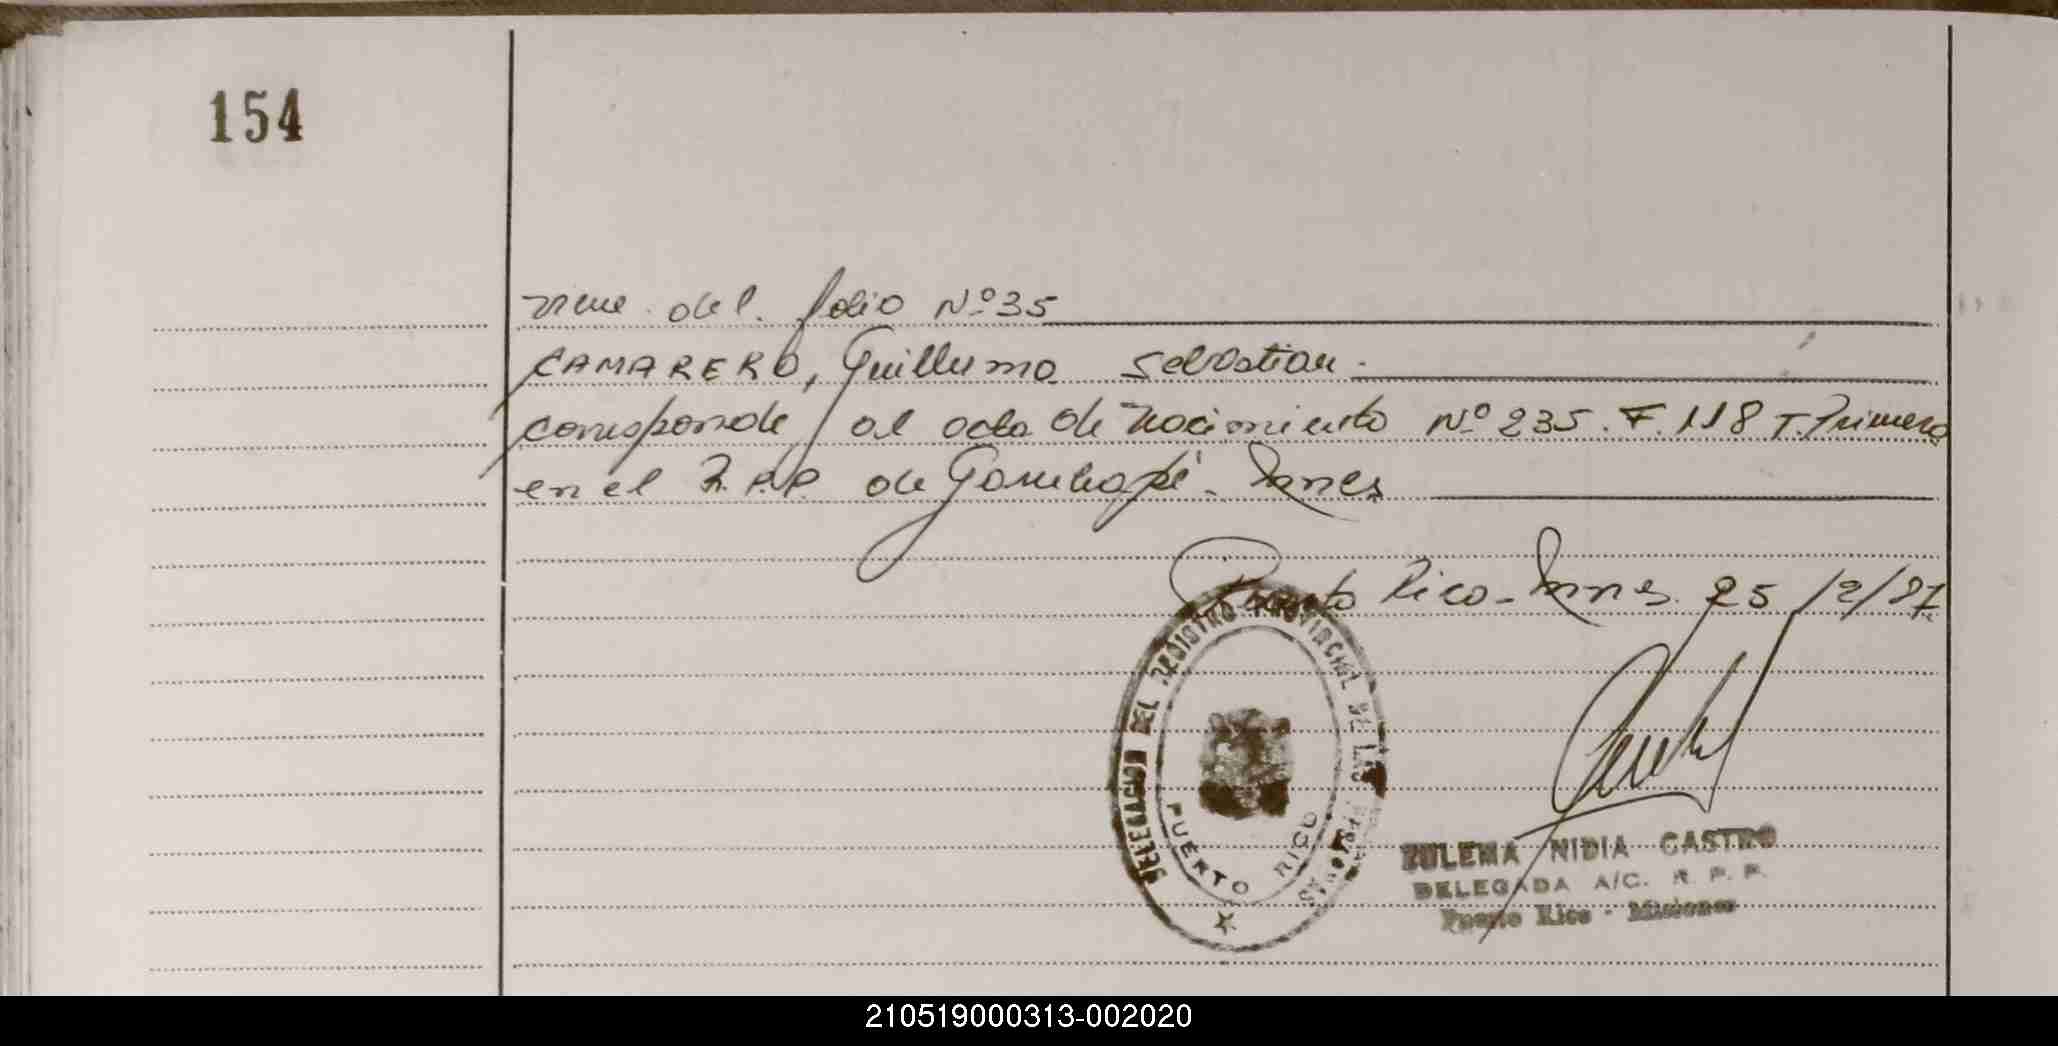 154
viene del folio Nº 35
CAMARERO, Guillermo Sebastian.
corresponde al acta de nacimiento Nº 235. F. 118 T. Primero
en el R.P.P. de Garuhapé - Mnes
Puerto Rico - Mnes. 25/2/87
DELEGACION DEL REGISTRO PROVINCIAL DE LAS PERSONAS
PUERTO RICO
ZULEMA NIDIA CASTRO
DELEGADA A/C. R. P. P.
Puerto Rico - Misiones
210519000313-002020